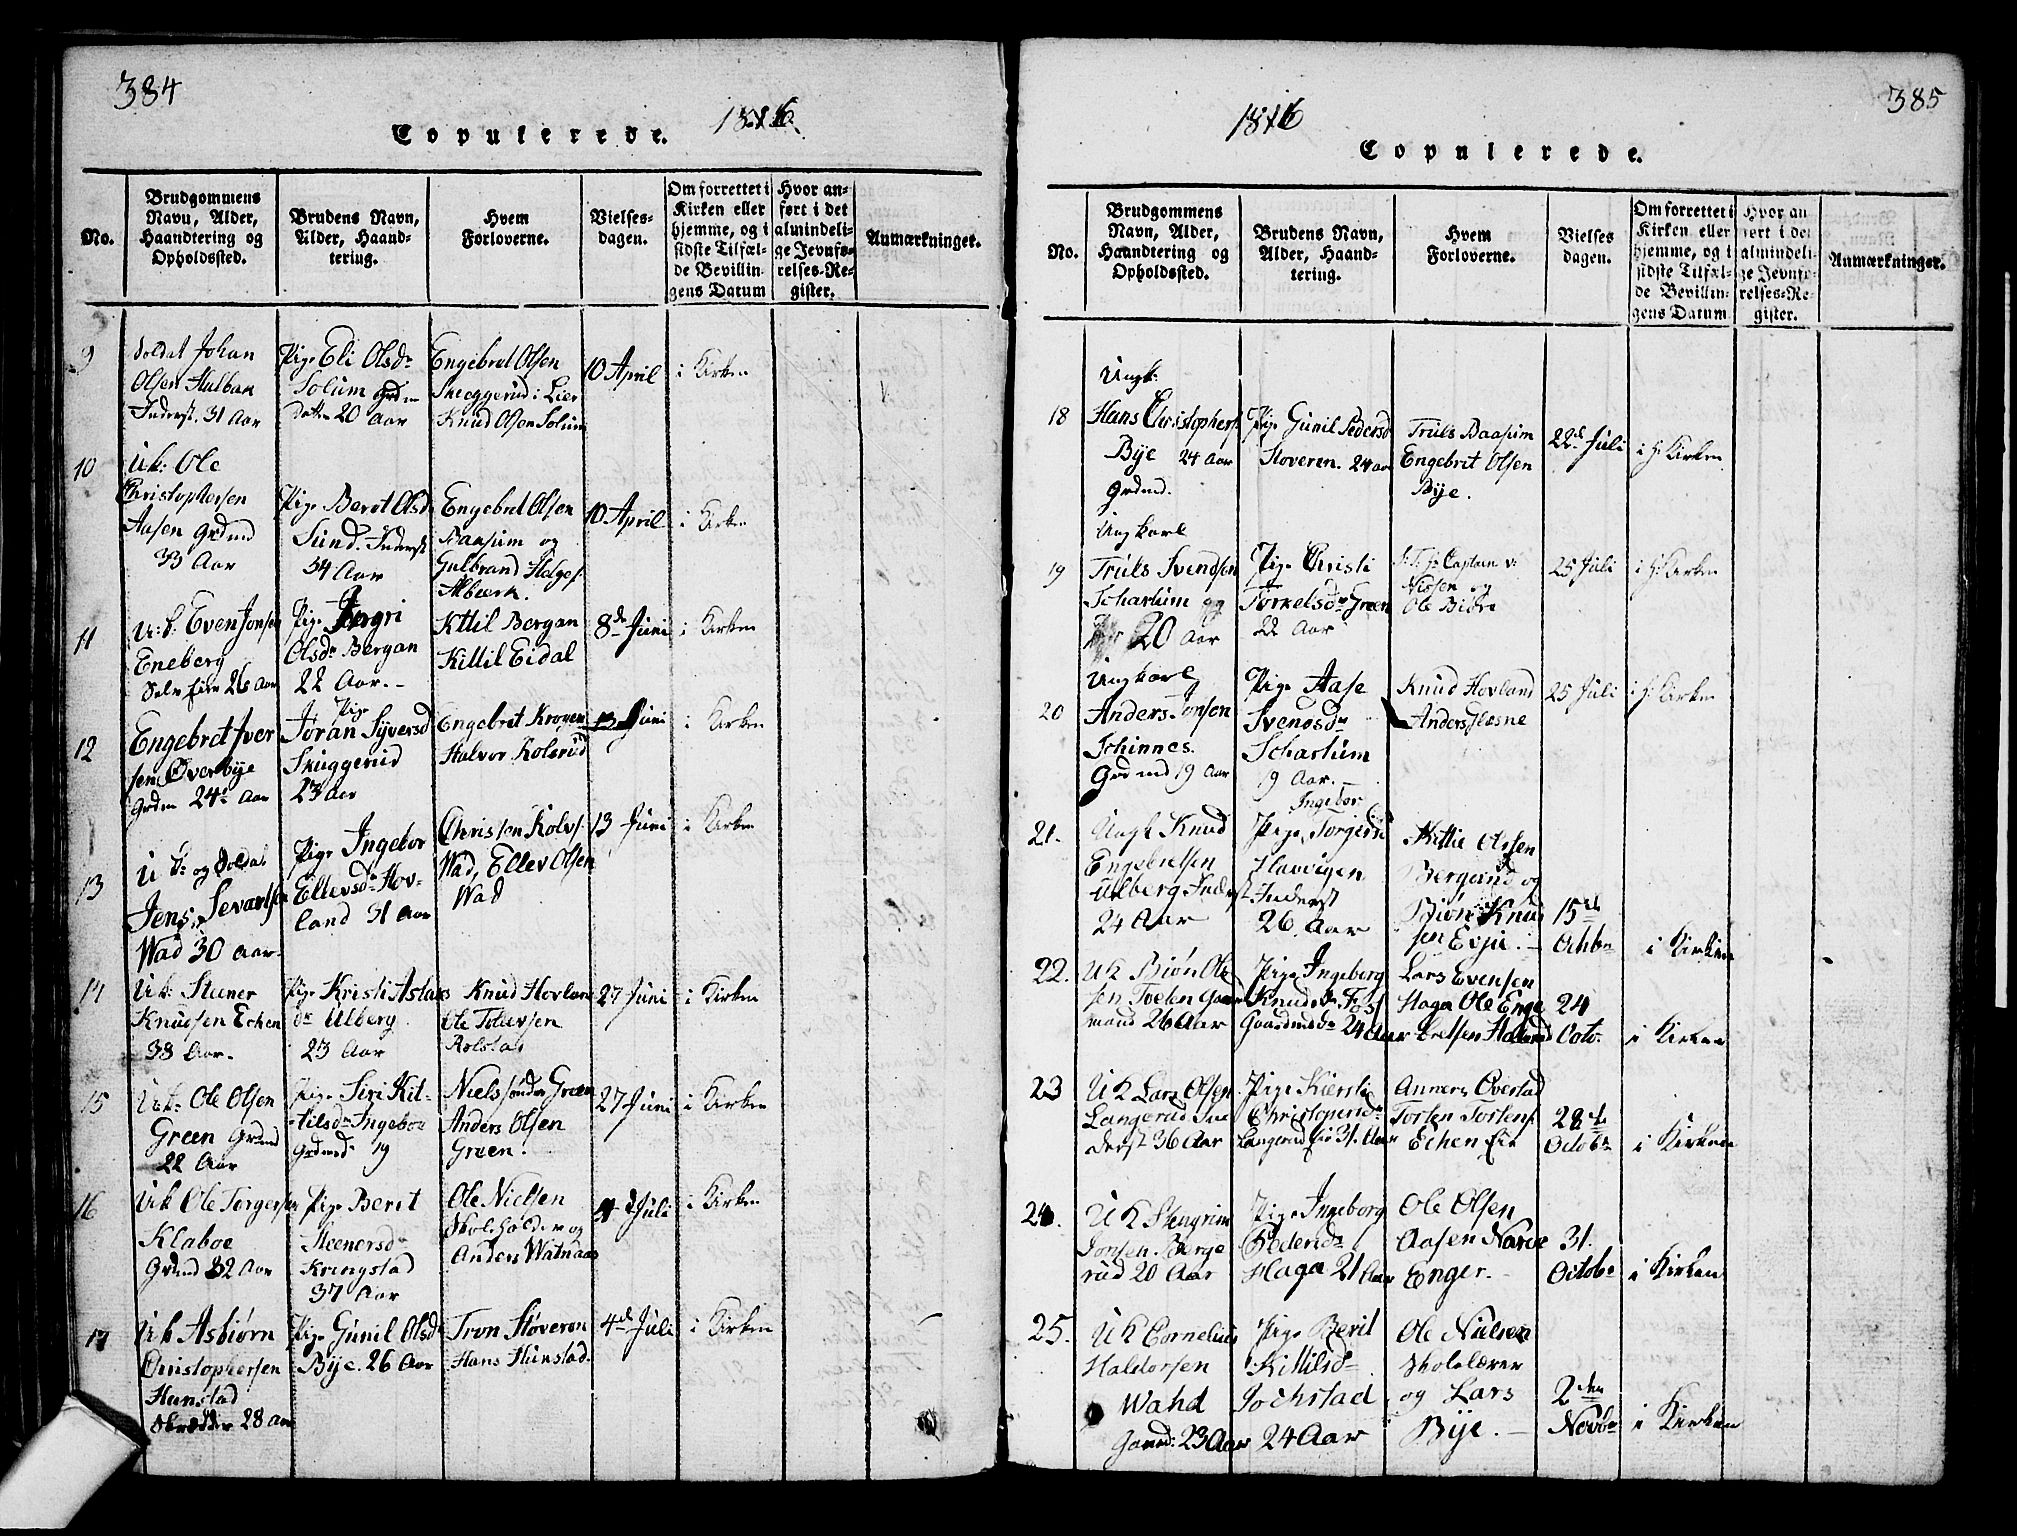 384
1816.
Copulerede.
No.
Brudgommens
Navn, Alder,
Haandtering og
Opholdssted.
Brudens Navn,
Alder, Haand-
tering.
Hvem
Forloverne.
Vielses-
dagen.
Om forrettet i
Kirken eller
hjemme, og i
sidste Tilfæl-
de Bevillin-
gens Datum
Hvor an-
ført i det
almindeli-
ge Jevnfø-
relses-Re-
gister.
Anmærkninger.
9
Soldat Johan
Olsen Hulbak
Inderst. 31 Aar
Pige Eli Olsdr
Solum
20 Aar
Engebret Olsen
Skoggerud i Lier
Knud Olsen Solum
10 April
i Kirken
10
Uk: Ole
Christophersen
Aasen Grdmd
33 Aar
Pige Berot Olsd
Sund. Inderst
34 Aar
Engebret Olsen
Baasum og
Gulbrand Helges
Albierk.
10 April
i Kirken
11
U:k: Even Jonsen
Eneberg
Selveier 26 Aar
Pige Ingri
Olsdr Bergan
22 Aar. -
Kttil Bergan
Kittil Eidal
8de Juni
i Kirken
12
Engebret Iver
sen Øverbye
Grdm 24 Aar
Pige
Joran Syversd
Skuggerud
23 Aar
Engebret Kroger
Halvor Kolsrud
13 Juni
i Kirken
13
U k: og Soldat
Jens Sevartsen
Wad 30 Aar.
Pige Ingebor
Ellevsdr Hov-
land 31 Aar
Christen Kolvs
Wad, Ellev Olsen
Wad
13 Juni
i Kirken
14
Uk: Steener
Knudsen Echen
38 Aar.
Pige Kristi Aslags
dr Ulberg
23 Aar
Knud Hovland
Ole Tollevsen
Rolstad
27 Juni
i Kirken
15
Uk: Ole Olsen
Green Grdmd
22 Aar
Pige Siri Kit-
tilsdr Ingeboe
Grdmdr 19
Niels Søndre Green
Anders Olsen
Green.
27 Juni
i Kirken
16
Uk Ole Torgersen
Klaboe
Grdmd 32 Aar
Pige Berit
Steenersdr
Kringstad
37 Aar
Ole Nielsen
Skoleholder og
Anders Watnaas
4de Juli
i Kirken
17
Uk Asbiørn
Christophersen
Hunstad
Skrædder 28 Aar
Pige Gunil Olsd
Bye. 26 Aar
Tron Støveren
Hans Hunstad.
4de Juli
i Kirken
385
1816
Copulerede.
No.
Brudgommens
Navn, Alder,
Haandtering og
Opholdssted.
Brudens Navn,
Alder, Haand-
tering.
Hvem
Forloverne.
Vielses
dagen.
Om forrettet i
Kirken eller
hjemme, og i
sidste Tilfæl-
de Bevillin-
gens Datum
Hvor an
ført i det
almindeli-
ge Jevnfø-
relses-Re-
gister.
Anmærkninger.
18
Ungk:
Hans Christophers
Bye 24 Aar
Grdmd.
Pige Gunil Pedersd
Stoveren. 24 aar
Truls Baasum
Engebret Olsen
Bye.
22d Juli
i H: Kirken
19
Ungkarl
Truls Svendsen
Scharlum og
20 Aar
Pige Christi
Torkelsdr Green
22 Aar
S: T: Hr Captain v:
Nissen og
Ole Biøre
25 Juli
i H: Kirken
20
Ungkarl
Anders Jonsen
Schinnes.
Grdmd 19 Aar
Pige Aase
Svendsdr
Scharlum
19 Aar. -
Knud Hovland
Anders Glesne
25 Juli
i H: Kirken
21.
Ungk Knud
Engebretsen
Ulberg Inderst
24 Aar
Ingebor
Pige Torgersd
Haavigen
Inderst
26 Aar
Kittil Olssen
Bergsund og
Biøn Knud
sen Evju. -
15de
Octobr
i Kirken
22.
UK Biøn Ole
sen Tveten Gaard
mand 26 Aar
Pige Ingeborg
Knudsdr Fos
Gaardmdsdr 24 Aar
Lars Evensen
Haga Ole Enge
bretsen Haland
24
Octo.
i Kirken
23
UK Lars Olsen
Langerud In
derst 36 Aar
Pige Kiersti
Christophersdr
Langerud Eie 31. Aar
Anners Overstad
Torsten Torstens
Echen Eie
28de
Octobr
i Kirken
24.
UK Stengrim
Jonsen Berge
rud 20 Aar
Pige Ingeborg
Pedersdr
Haga 21 Aar
Ole Olsen
Aasen Narve
Enger. -
31.
Octobr
i Kirken
25.
UK Cornelius
Haldorsen
Wahd
Gaardmd: 23 Aar
Pige Berit
Kittilsdr
Jochstad
24 Aar
Ole Nielsen
Skolelærer
og Lars
Bye. -
2den
Novbr
i Kirken